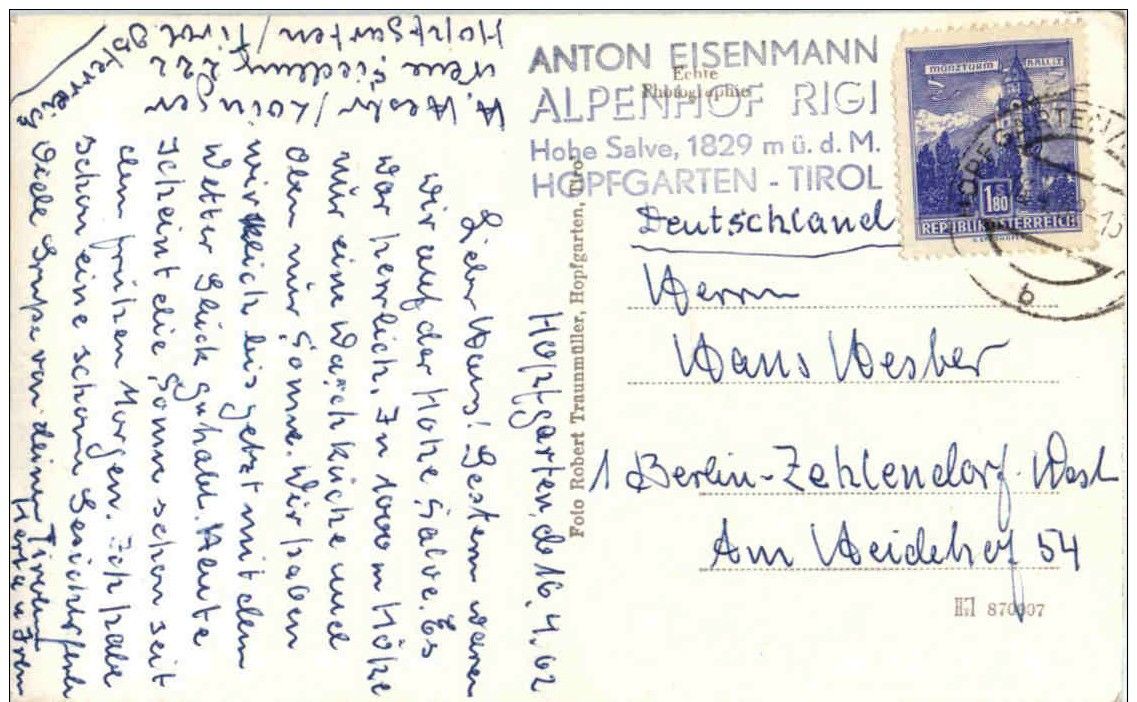 ANTON EISENMANN
ALPENHOF RIGI
Hohe Salve, 1829 m ü. d. M.
HOPFGARTEN - TIROL
Echte
Photographie
MÜNZTURM HALL I T
1 S 80
REPUBLIK ÖSTERREICH
HOPFGARTEN
b
Deutschland
Herrn
Hans Hesber
1 Berlin-Zehlendorf-West
Am Heidehof 54
870007
Foto Robert Traunmüller, Hopfgarten, Tirol
Hopfgarten, d. 16. 4. 62
Lieber Hans! Gestern waren
wir auf der Hohe Salve. Es
war herrlich. In 1000 m Höhe
nur eine Waschküche und
oben nur Sonne. Wir haben
wirklich bis jetzt mit dem
Wetter Glück gehabt. Heute
scheint die Sonne schon seit
dem frühen Morgen. Ich habe
schon eine schöne Gesichtsfarbe
Viele Grüße von deinen Tirolern
Herta u.
H. Hesbr / Loinger
Neue Siedlung 222
Hopfgarten / Tirol
Österreich